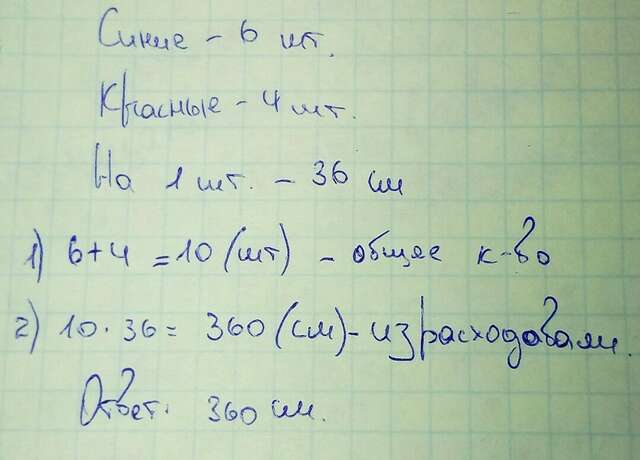 Синие - 6 шт.
Красные - 4 шт.
На 1 шт. - 36 см
1) 6+4 = 10 (шт) - общее к-во
2) 10 · 36 = 360 (см) - израсходовали.
Ответ: 360 см.